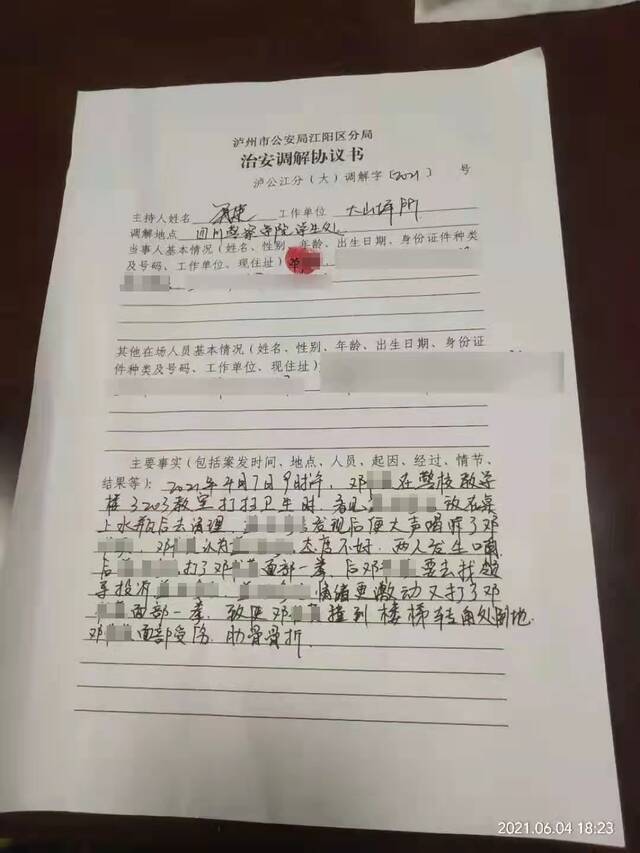 泸州市公安局江阳区分局
治安调解协议书
泸公江分（大）调解字〔2021〕 号
主持人姓名 工作单位 大山坪
调解地点 四川警察学院学生处
当事人基本情况（姓名、性别、年龄、出生日期、身份证件种类
及号码、工作单位、现住址）
其他在场人员基本情况（姓名、性别、年龄、出生日期、身份证
件种类及号码、工作单位、现住址）
主要事实（包括案发时间、地点、人员、起因、经过、情节、
结果等）：2021年4月7日9时许，邓 在警校教学
楼3203教室打扫卫生时，看见 放在桌
上水瓶后去清理， 发现后便大声喝斥了邓
，邓 认为 态度不好，两人发生口角
后 打了邓 面部一拳，后邓 要去找领
导投诉 ， 情绪更激动又打了邓
面部一拳，致使邓 撞到楼梯转角处倒地
邓 面部受伤，肋骨骨折。
2021.06.04 18:23